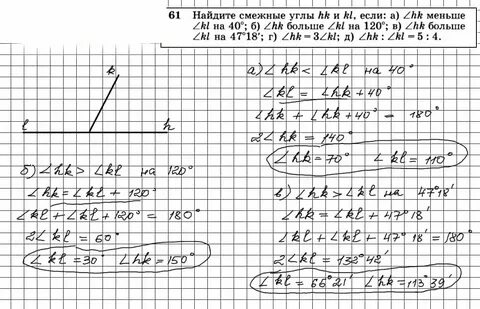 61 Найдите смежные углы hk и kl, если: а) ∠hk меньше
∠kl на 40°; б) ∠hk больше ∠kl на 120°; в) ∠hk больше
∠kl на 47°18′; г) ∠hk = 3∠kl; д) ∠hk : ∠kl = 5 : 4.
k
l
h
а) ∠hk < ∠kl на 40°
∠kl = ∠hk + 40°
∠hk + ∠hk + 40° = 180°
2∠hk = 140°
∠hk = 70° ∠kl = 110°
б) ∠hk > ∠kl на 120°
∠hk = ∠kl + 120°
∠kl + ∠kl + 120° = 180°
2∠kl = 60°
∠kl = 30° ∠hk = 150°
в) ∠hk > ∠kl на 47°18′
∠hk = ∠kl + 47°18′
∠kl + ∠kl + 47°18′ = 180°
2∠kl = 132°42′
∠kl = 66°21′ ∠hk = 113°39′